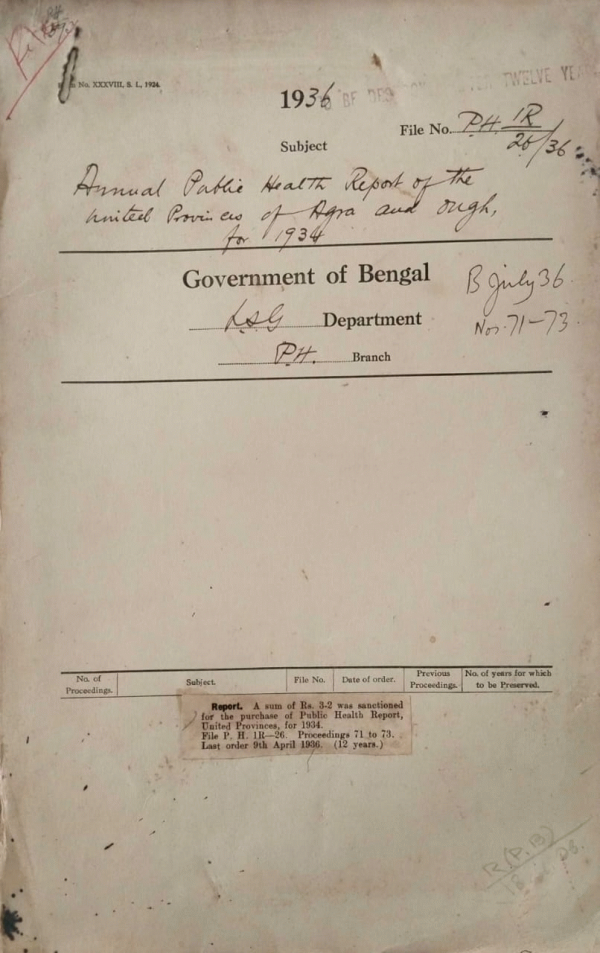 No. XXXVIII, S. I., 1924.
1936
TWELVE YEA
File No. P.H. 1R
26/36
Subject
Annual Public Health Report of the
United Provinces of Agra and Ough,
for 1934
Government of Bengal
B July 36
LSG Department
Nos. 71-73
P.H. Branch
No. of Proceedings. Subject. File No. Date of order. Previous Proceedings. No. of years for which to be Preserved.
Report. A sum of Rs. 3-2 was sanctioned
for the purchase of Public Health Report,
United Provinces, for 1934.
File P. H. 1R—26. Proceedings 71 to 73.
Last order 9th April 1936. (12 years.)
R(P.B)